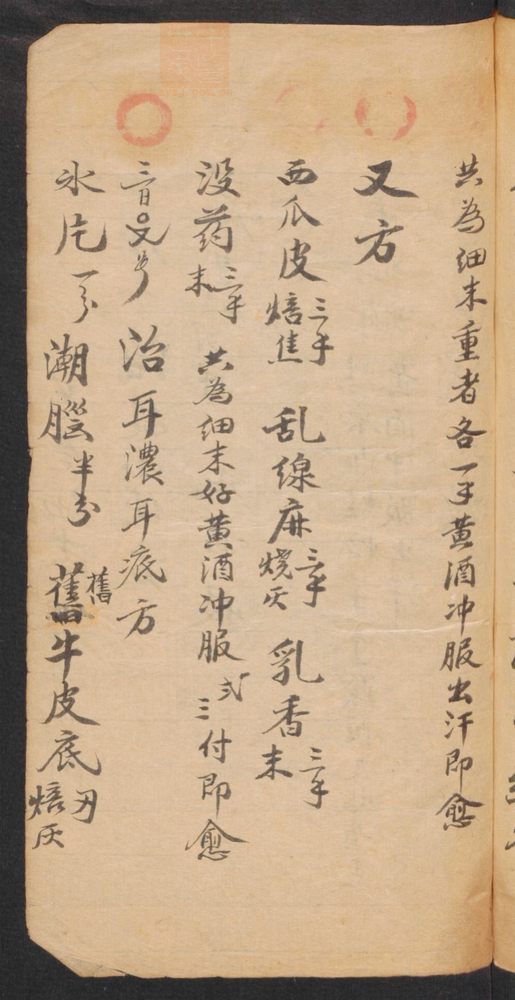 共為细末重者各一手黄酒冲服出汗即愈
又方
西瓜皮三手焙焦 乱線麻三手烧灰 乳香三手末
没药三手末 共為细末好黄酒冲服弍三付即愈
治耳濃耳底方
氷片一分 潮腦半分 舊舊牛皮底焙灰